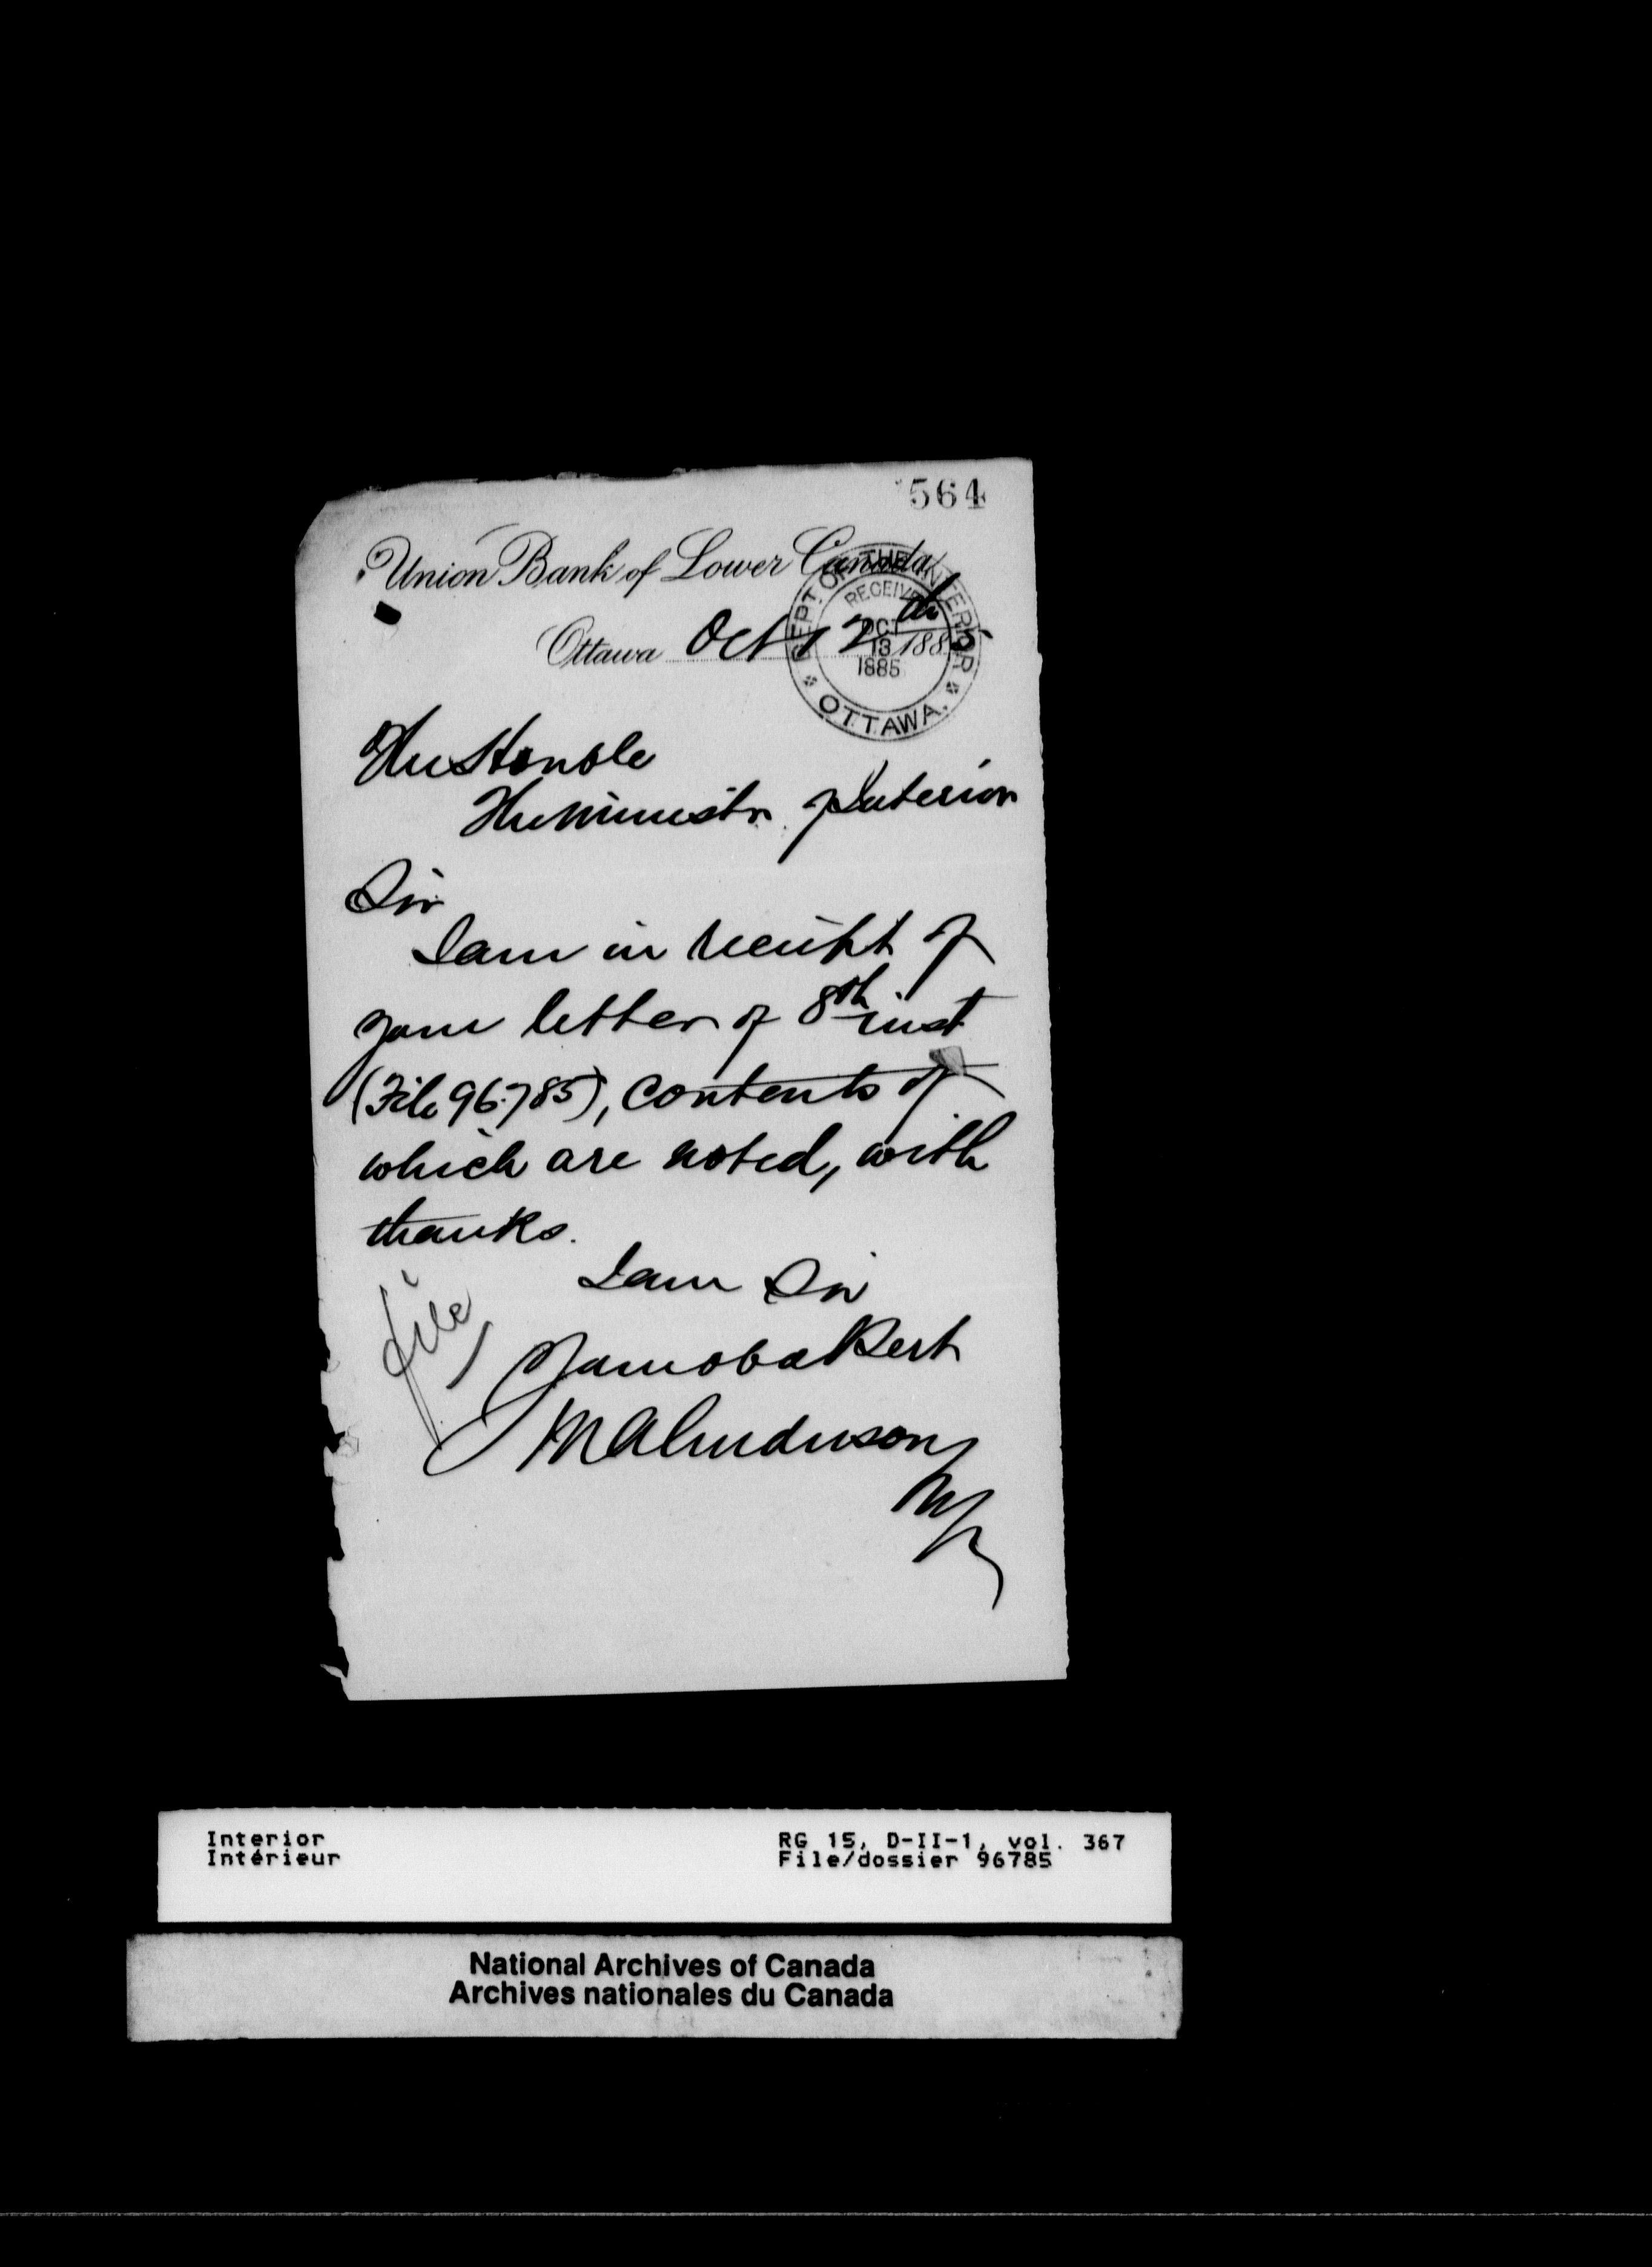 564
Union Bank of Lower Canada
Ottawa Oct 12th 1885
DEPT. OF THE INTERIOR
RECEIVED
OCT
13
1885
OTTAWA.
The Honble
The Minister of Interior
Sir
I am in receipt of
your letter of 8th inst
(File 96785), contents of
which are noted, with
thanks.
I am Sir
file
Your obdt Servt
Mgr
Interior
Intérieur
RG 15, D-II-1, vol. 367
File/dossier 96785
National Archives of Canada
Archives nationales du Canada